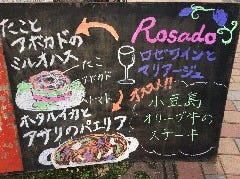 たこと
アボカドの
ミルフィーユ
たこ
アボカド
トマト
ホタルイカと
アサリのパエリア
Rosado
ロゼワインと
マリアージュ
オススメ!!
小豆島
オリーブ牛の
ステーキ